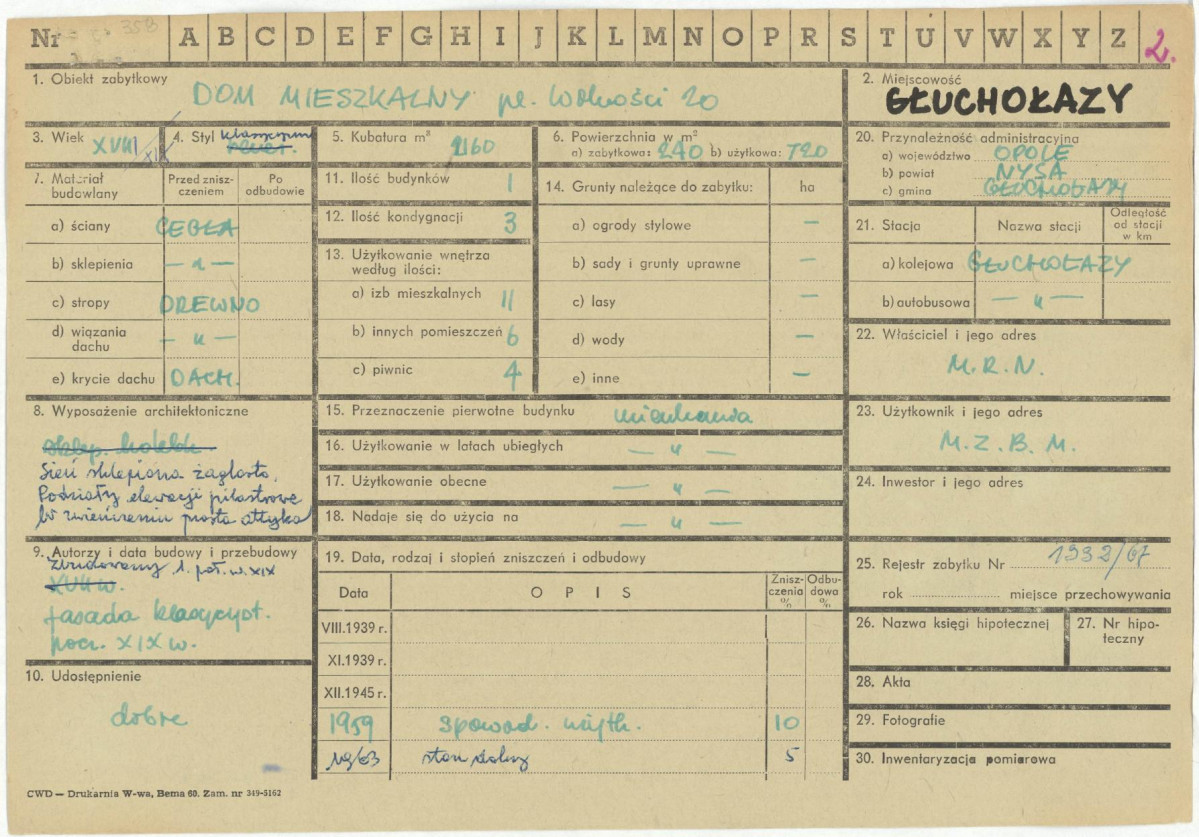 Nr
A B C D E F G H I J K L M N O P R S T U V W X Y Z 2.
1. Obiekt zabytkowy DOM MIESZKALNY pl. Wolności 20
2. Miejscowość
GŁUCHOŁAZY
3. Wiek XVIII/XIX
4. Styl klasycyzm
5. Kubatura m³ 2160
6. Powierzchnia w m²
a) zabytkowa: 240 b) użytkowa: 720
7. Materiał budowlany
Przed zniszczeniem
Po odbudowie
a) ściany CEGŁA
b) sklepienia — „ —
c) stropy DREWNO
d) wiązania dachu — „ —
e) krycie dachu DACH.
8. Wyposażenie architektoniczne
Sień sklepiona żaglasto.
Podziały elewacji pilastrowe
W zwieńczeniu prosta attyka
9. Autorzy i data budowy i przebudowy
Zbudowany 1. poł. w. XIX
XVIII w.
fasada klasycyst.
pocz. XIX w.
10. Udostępnienie
dobre
11. Ilość budynków 1
12. Ilość kondygnacji 3
13. Użytkowanie wnętrza według ilości:
a) izb mieszkalnych 11
b) innych pomieszczeń 6
c) piwnic 4
14. Grunty należące do zabytku: ha
a) ogrody stylowe —
b) sady i grunty uprawne —
c) lasy —
d) wody —
e) inne —
15. Przeznaczenie pierwotne budynku mieszkania
16. Użytkowanie w latach ubiegłych — „ —
17. Użytkowanie obecne — „ —
18. Nadaje się do użycia na — „ —
19. Data, rodzaj i stopień zniszczeń i odbudowy
Data
OPIS
Zniszczenia %
Odbudowa %
VIII.1939 r.
XI.1939 r.
XII.1945 r.
1959 spowod. użytk. 10
19/63 stan dobry 5
20. Przynależność administracyjna
a) województwo OPOLE
b) powiat NYSA
c) gmina GŁUCHOŁAZY
21. Stacja
Nazwa stacji
Odległość od stacji w km
a) kolejowa GŁUCHOŁAZY
b) autobusowa — „ —
22. Właściciel i jego adres
M.R.N.
23. Użytkownik i jego adres
M.Z.B.M.
24. Inwestor i jego adres
25. Rejestr zabytku Nr 1332/67
rok miejsce przechowywania
26. Nazwa księgi hipotecznej
27. Nr hipoteczny
28. Akta
29. Fotografie
30. Inwentaryzacja pomiarowa
CWD — Drukarnia W-wa, Bema 60. Zam. nr 349-5162